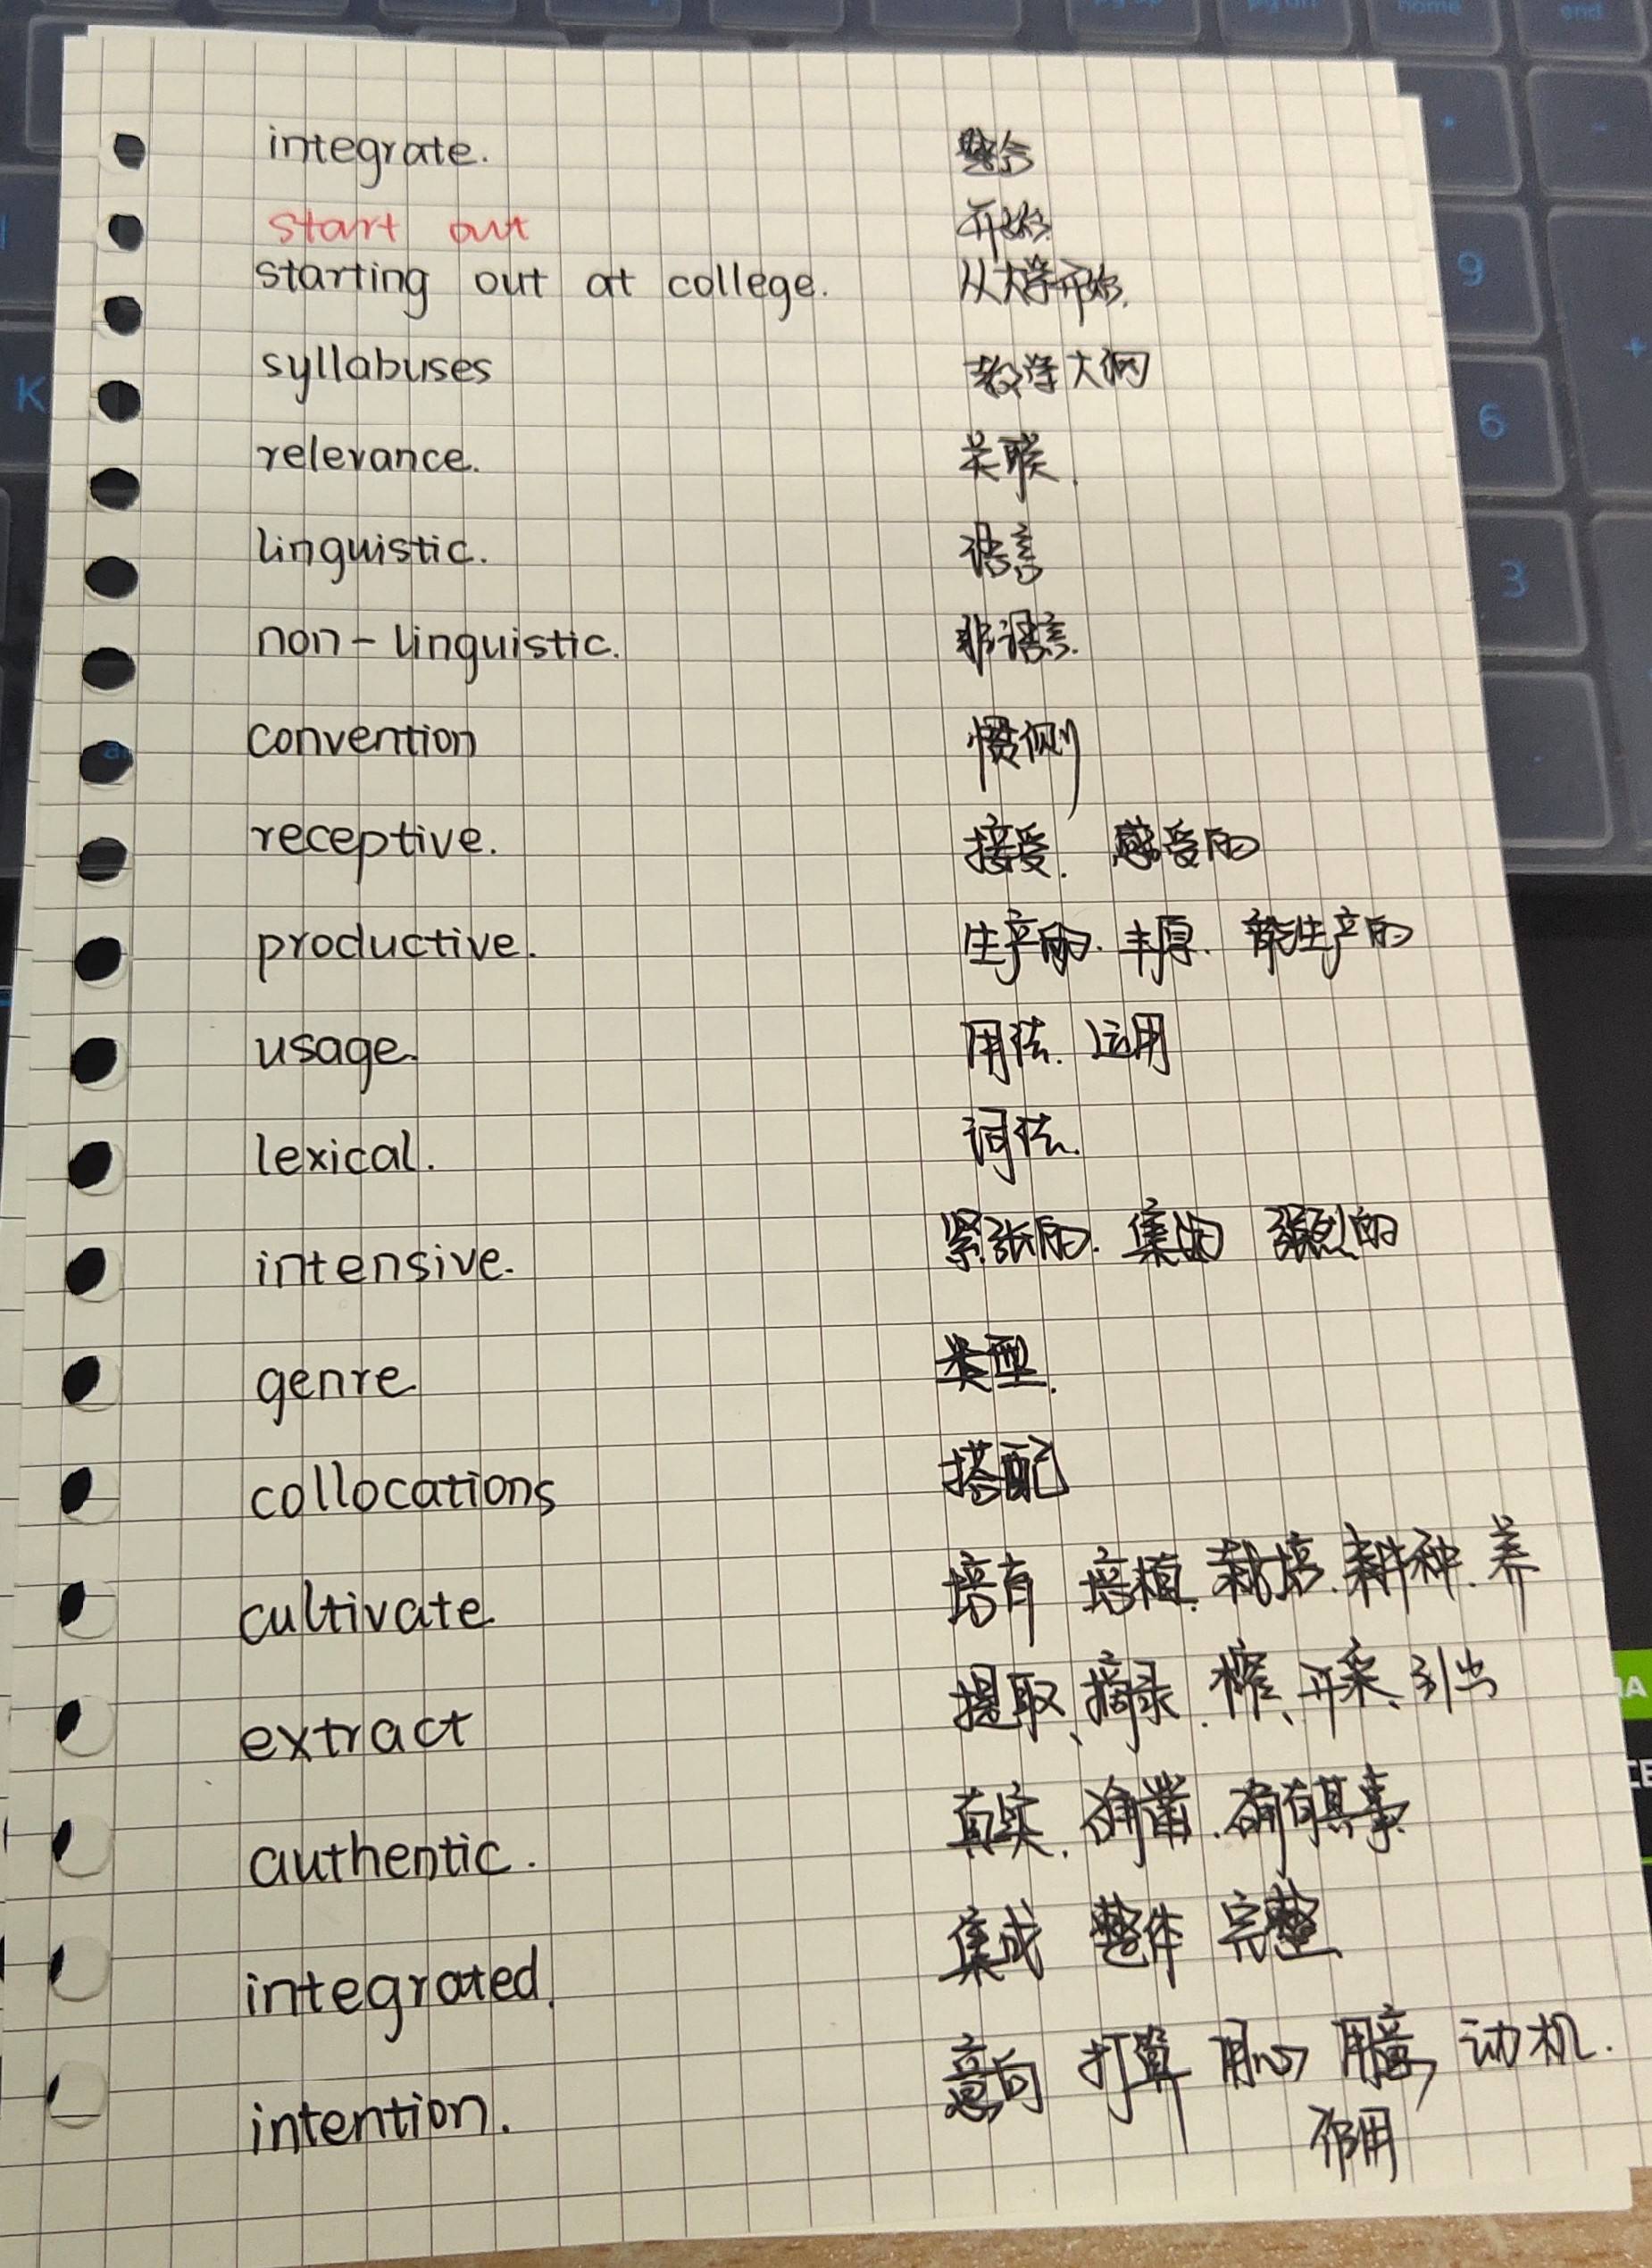 integrate. 整合
start out 开始
starting out at college. 从大学开始.
syllabuses 教学大纲
relevance. 关联.
linguistic. 语言
non-linguistic. 非语言.
convention 惯例
receptive. 接受. 感受的
productive. 生产的. 丰厚. 能生产的
usage. 用法. 运用
lexical. 词法.
intensive. 紧张的. 集约 强烈的
genre 类型.
collocations 搭配
cultivate 培育 培植. 栽培. 耕种. 养
extract 提取、摘录. 榨、开采、引出
authentic. 真实. 确凿. 确有其事
integrated. 集成 整体 完整
intention. 意向 打算 用心 用意, 动机.
作用
K
9
6
3
+
home
end